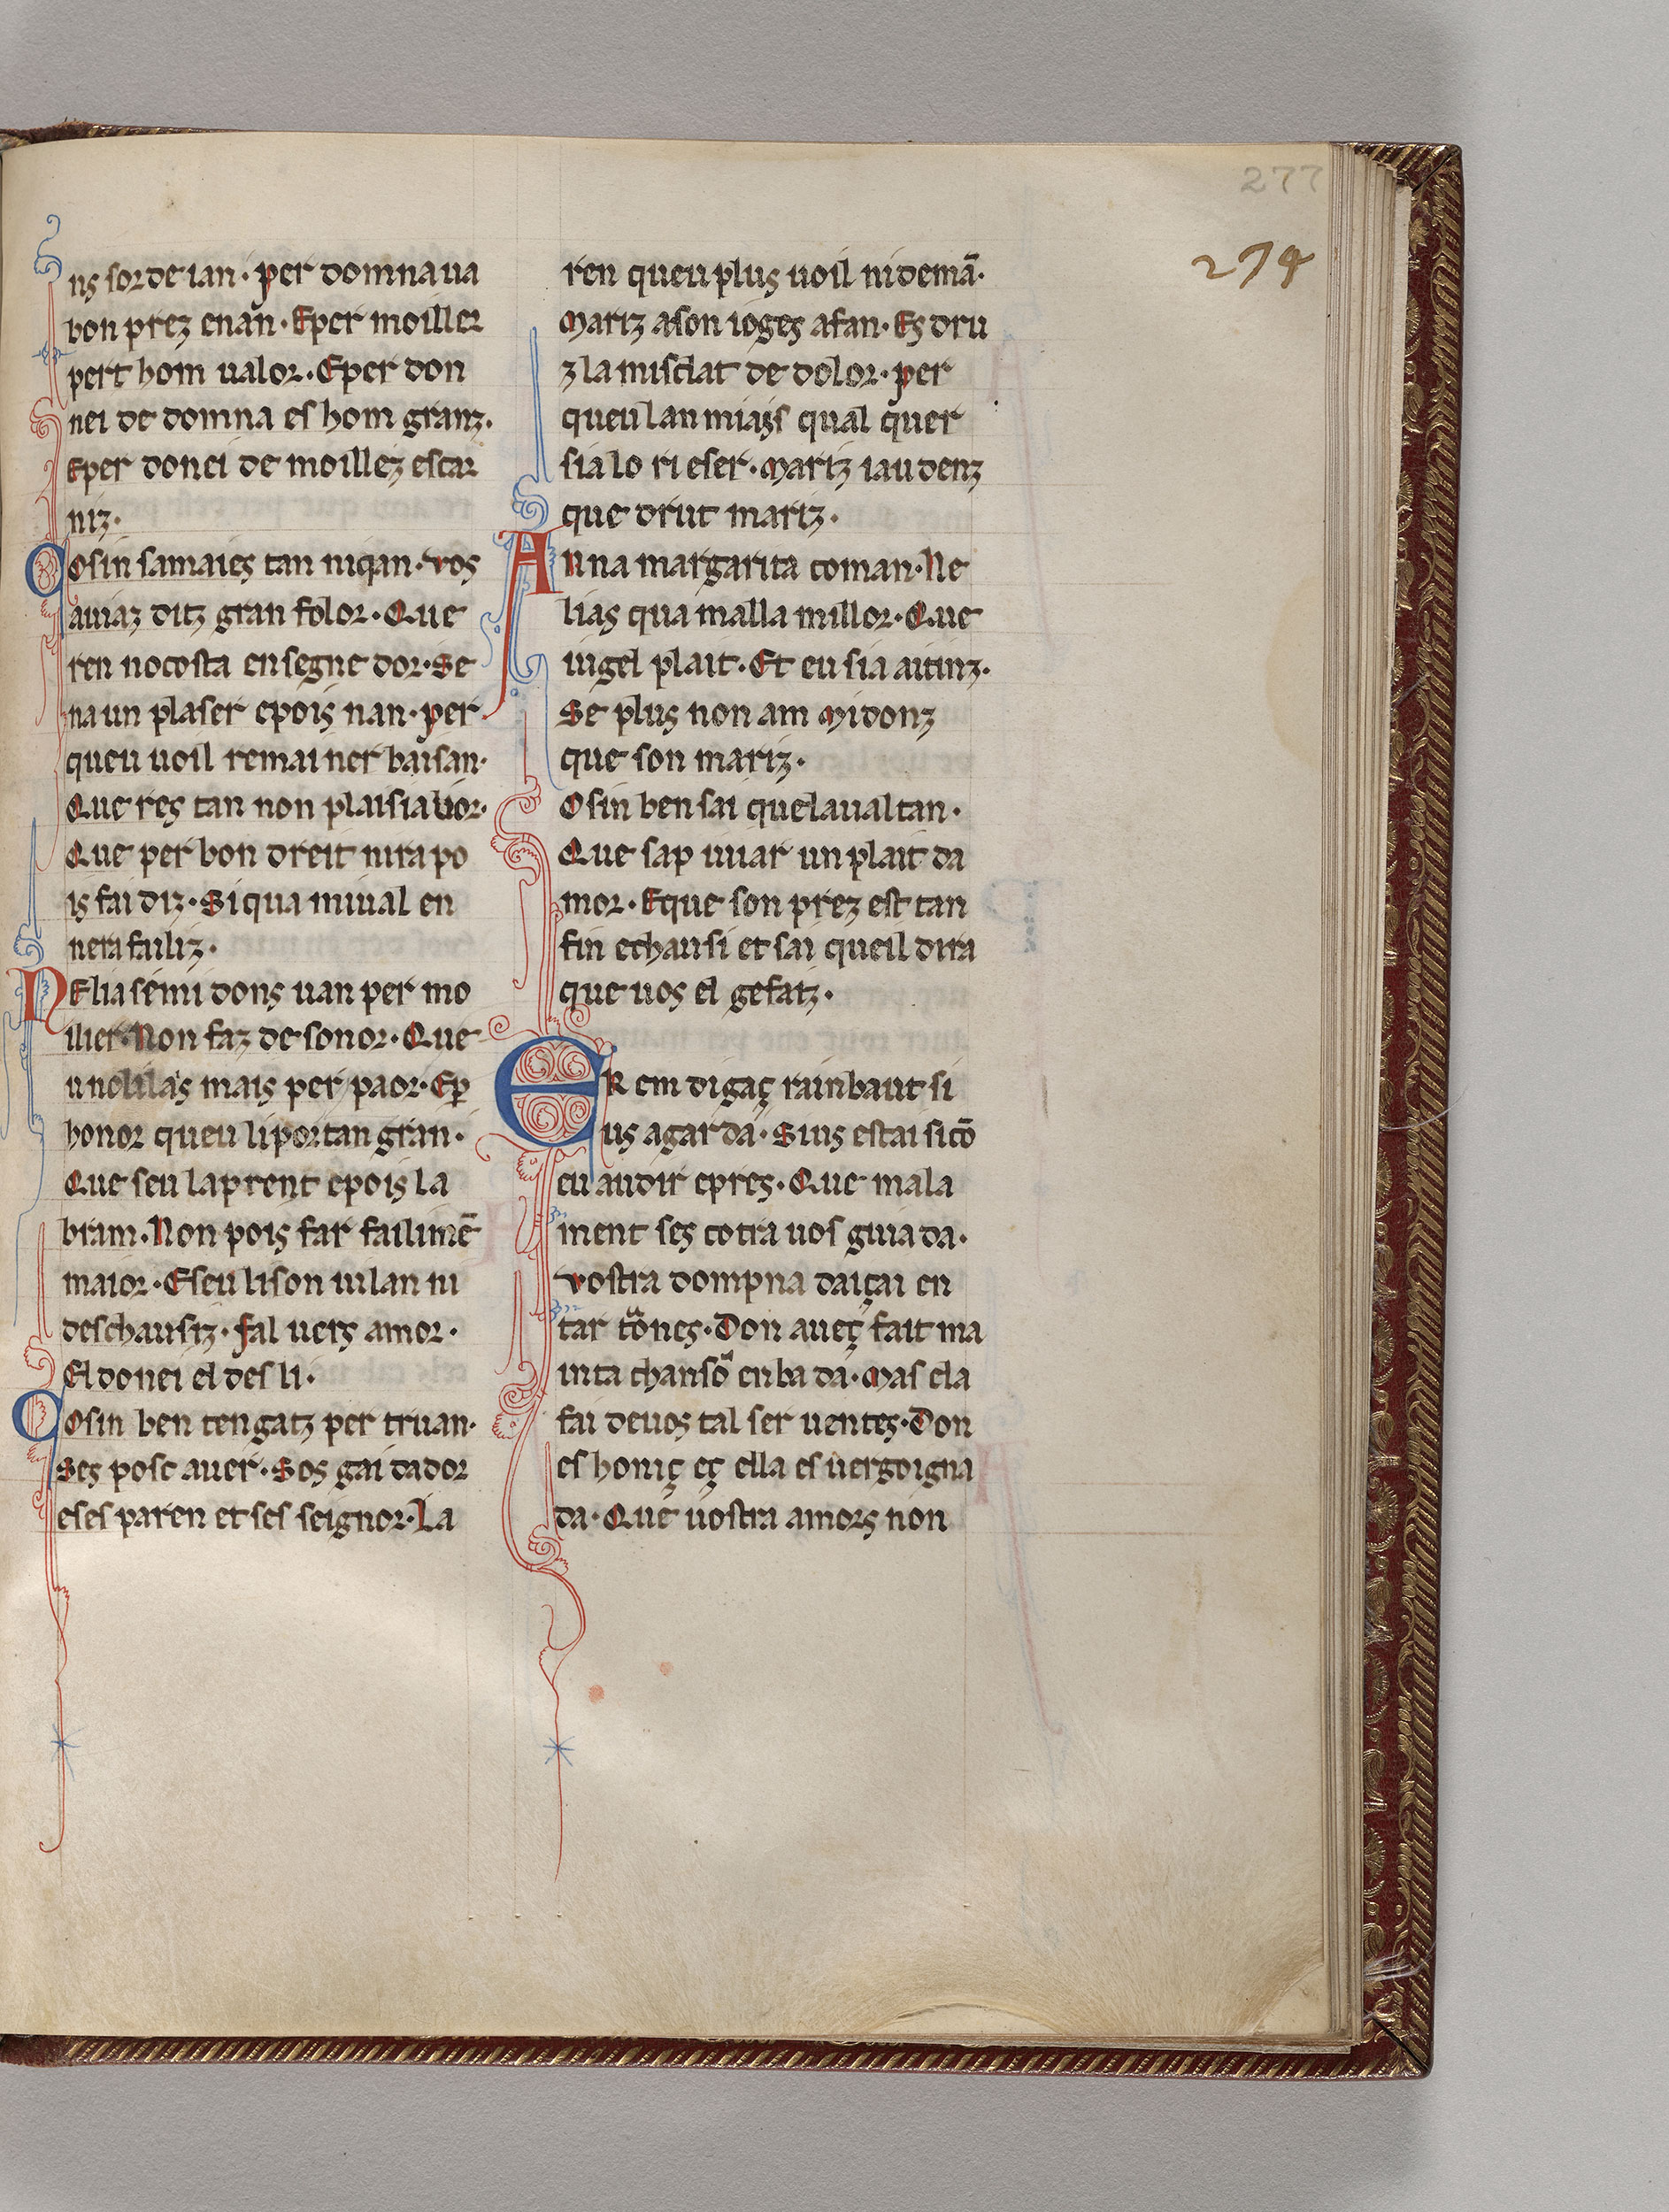 277
274
ns sorde ian · per domna ua
bon prez enan · Eper moiller
pert hom ualor · Eper don
nei de domna es hom granz ·
Eper donei de moillez escar
niz ·
Cosin samaies tan niqan · vos
auiaz ditz gran folor · Que
ren nocosta ensegne dor · Se
na un plaser epois nan · per
queu uoil remainer baisan ·
Que res tan non plaisia uor ·
Que per bon dreit nira po
is faidiz · Si qua miual en
nera fuliz ·
Nelias e mi dons uan per mo
illier · Non faz desonor · Que
u nolilas mais per paor · Eꝑ
honor queu li portan gran ·
Que seu laprent epois la
bram · Non pois far failimē
maior · Eseu li son uilan ni
deschausiz · fal uers amor ·
El donei el desli ·
Cosin ben tengatz per truan ·
Ses posc auer · Sos gaidador
eses paren et ses seignor · La
ren queu plus uoil ni demā ·
Mariz a son ioges afan · Es dru
z la misclat de dolor · per
queu lan mais qual quer
sia lo ri eser · Mariz iaudenz
que drut mariz ·
An na margarita coman · Ne
lias qua malla millor · Que
iugel plait · Et eu sia aitinz ·
Se plus non am Midonz
que son mariz ·
Osin ben sai quelaualtan ·
Que sap iuiar un plait da
mor · Eque son prez est tan
fin echausi et sai queil dira
que uos el gefaiz ·
ER em digaç rainbaut si
us agarda · Sius estai sicō
eu audir epres · Que mala
ment ses cotra uos guiada ·
vostra dompna daiçai en
tar tones · Don aueç fait ma
inta chansō enbada · Mas ela
fai deuos tal seruentes · Don
es honiç eç ella es uergoigna
da · Que uostra amors non